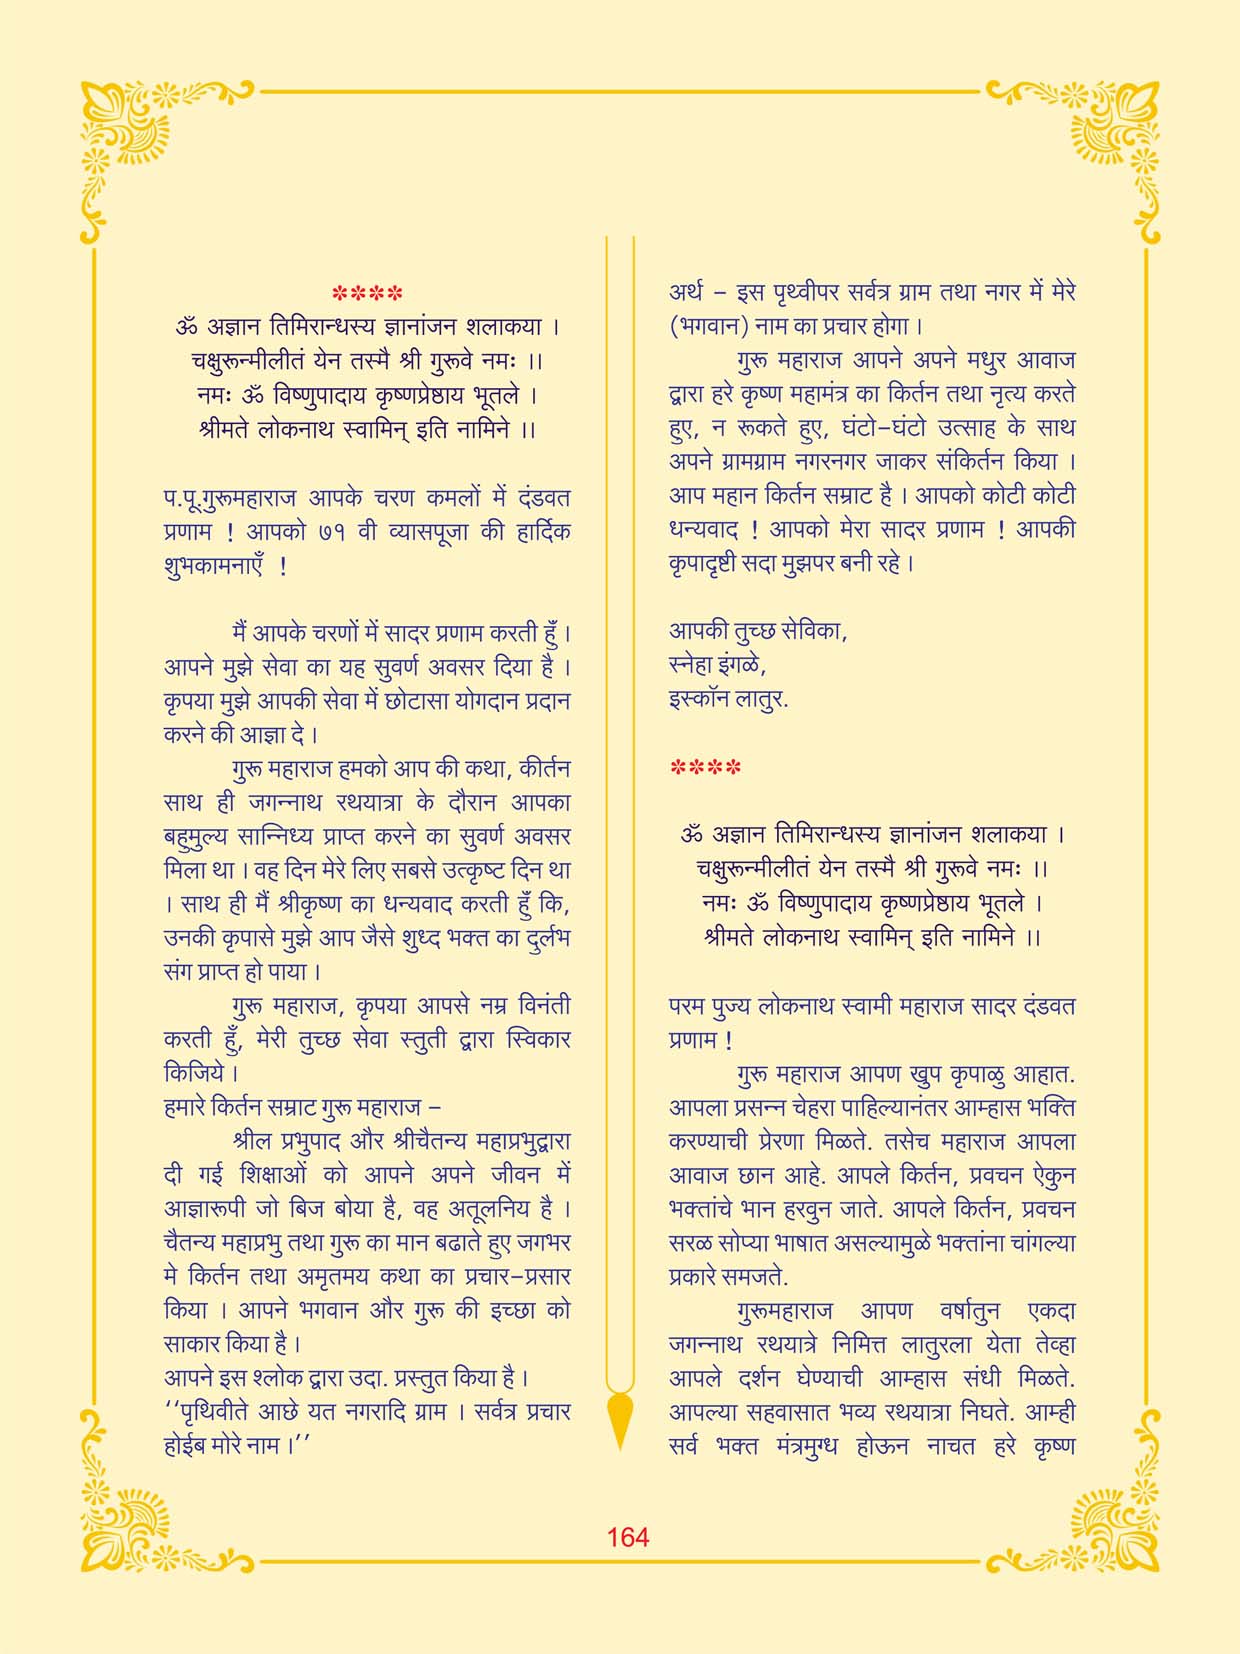 ****
ॐ अज्ञान तिमिरान्धस्य ज्ञानांजन शलाकया ।
चक्षुरून्मीलीतं येन तस्मै श्री गुरूवे नमः ।।
नमः ॐ विष्णुपादाय कृष्णप्रेष्ठाय भूतले ।
श्रीमते लोकनाथ स्वामिन् इति नामिने ।।
प.पू.गुरूमहाराज आपके चरण कमलों में दंडवत
प्रणाम ! आपको ७१ वी व्यासपूजा की हार्दिक
शुभकामनाएँ !
मैं आपके चरणों में सादर प्रणाम करती हुँ ।
आपने मुझे सेवा का यह सुवर्ण अवसर दिया है ।
कृपया मुझे आपकी सेवा में छोटासा योगदान प्रदान
करने की आज्ञा दे ।
गुरू महाराज हमको आप की कथा, कीर्तन
साथ ही जगन्नाथ रथयात्रा के दौरान आपका
बहुमुल्य सान्निध्य प्राप्त करने का सुवर्ण अवसर
मिला था । वह दिन मेरे लिए सबसे उत्कृष्ट दिन था
। साथ ही मैं श्रीकृष्ण का धन्यवाद करती हुँ कि,
उनकी कृपासे मुझे आप जैसे शुध्द भक्त का दुर्लभ
संग प्राप्त हो पाया ।
गुरू महाराज, कृपया आपसे नम्र विनंती
करती हुँ, मेरी तुच्छ सेवा स्तुती द्वारा स्विकार
किजिये ।
हमारे किर्तन सम्राट गुरू महाराज –
श्रील प्रभुपाद और श्रीचैतन्य महाप्रभुद्वारा
दी गई शिक्षाओं को आपने अपने जीवन में
आज्ञारूपी जो बिज बोया है, वह अतूलनिय है ।
चैतन्य महाप्रभु तथा गुरू का मान बढाते हुए जगभर
मे किर्तन तथा अमृतमय कथा का प्रचार–प्रसार
किया । आपने भगवान और गुरू की इच्छा को
साकार किया है ।
आपने इस श्लोक द्वारा उदा. प्रस्तुत किया है ।
‘‘पृथिवीते आछे यत नगरादि ग्राम । सर्वत्र प्रचार
होईब मोरे नाम ।’’
अर्थ – इस पृथ्वीपर सर्वत्र ग्राम तथा नगर में मेरे
(भगवान) नाम का प्रचार होगा ।
गुरू महाराज आपने अपने मधुर आवाज
द्वारा हरे कृष्ण महामंत्र का किर्तन तथा नृत्य करते
हुए, न रूकते हुए, घंटो–घंटो उत्साह के साथ
अपने ग्रामग्राम नगरनगर जाकर संकिर्तन किया ।
आप महान किर्तन सम्राट है । आपको कोटी कोटी
धन्यवाद ! आपको मेरा सादर प्रणाम ! आपकी
कृपादृष्टी सदा मुझपर बनी रहे ।
आपकी तुच्छ सेविका,
स्नेहा इंगळे,
इस्कॉन लातुर.
****
ॐ अज्ञान तिमिरान्धस्य ज्ञानांजन शलाकया ।
चक्षुरून्मीलीतं येन तस्मै श्री गुरूवे नमः ।।
नमः ॐ विष्णुपादाय कृष्णप्रेष्ठाय भूतले ।
श्रीमते लोकनाथ स्वामिन् इति नामिने ।।
परम पुज्य लोकनाथ स्वामी महाराज सादर दंडवत
प्रणाम !
गुरू महाराज आपण खुप कृपाळु आहात.
आपला प्रसन्न चेहरा पाहिल्यानंतर आम्हास भक्ति
करण्याची प्रेरणा मिळते. तसेच महाराज आपला
आवाज छान आहे. आपले किर्तन, प्रवचन ऐकुन
भक्तांचे भान हरवुन जाते. आपले किर्तन, प्रवचन
सरळ सोप्या भाषात असल्यामुळे भक्तांना चांगल्या
प्रकारे समजते.
गुरूमहाराज आपण वर्षातुन एकदा
जगन्नाथ रथयात्रे निमित्त लातुरला येता तेव्हा
आपले दर्शन घेण्याची आम्हास संधी मिळते.
आपल्या सहवासात भव्य रथयात्रा निघते. आम्ही
सर्व भक्त मंत्रमुग्ध होऊन नाचत हरे कृष्ण
164